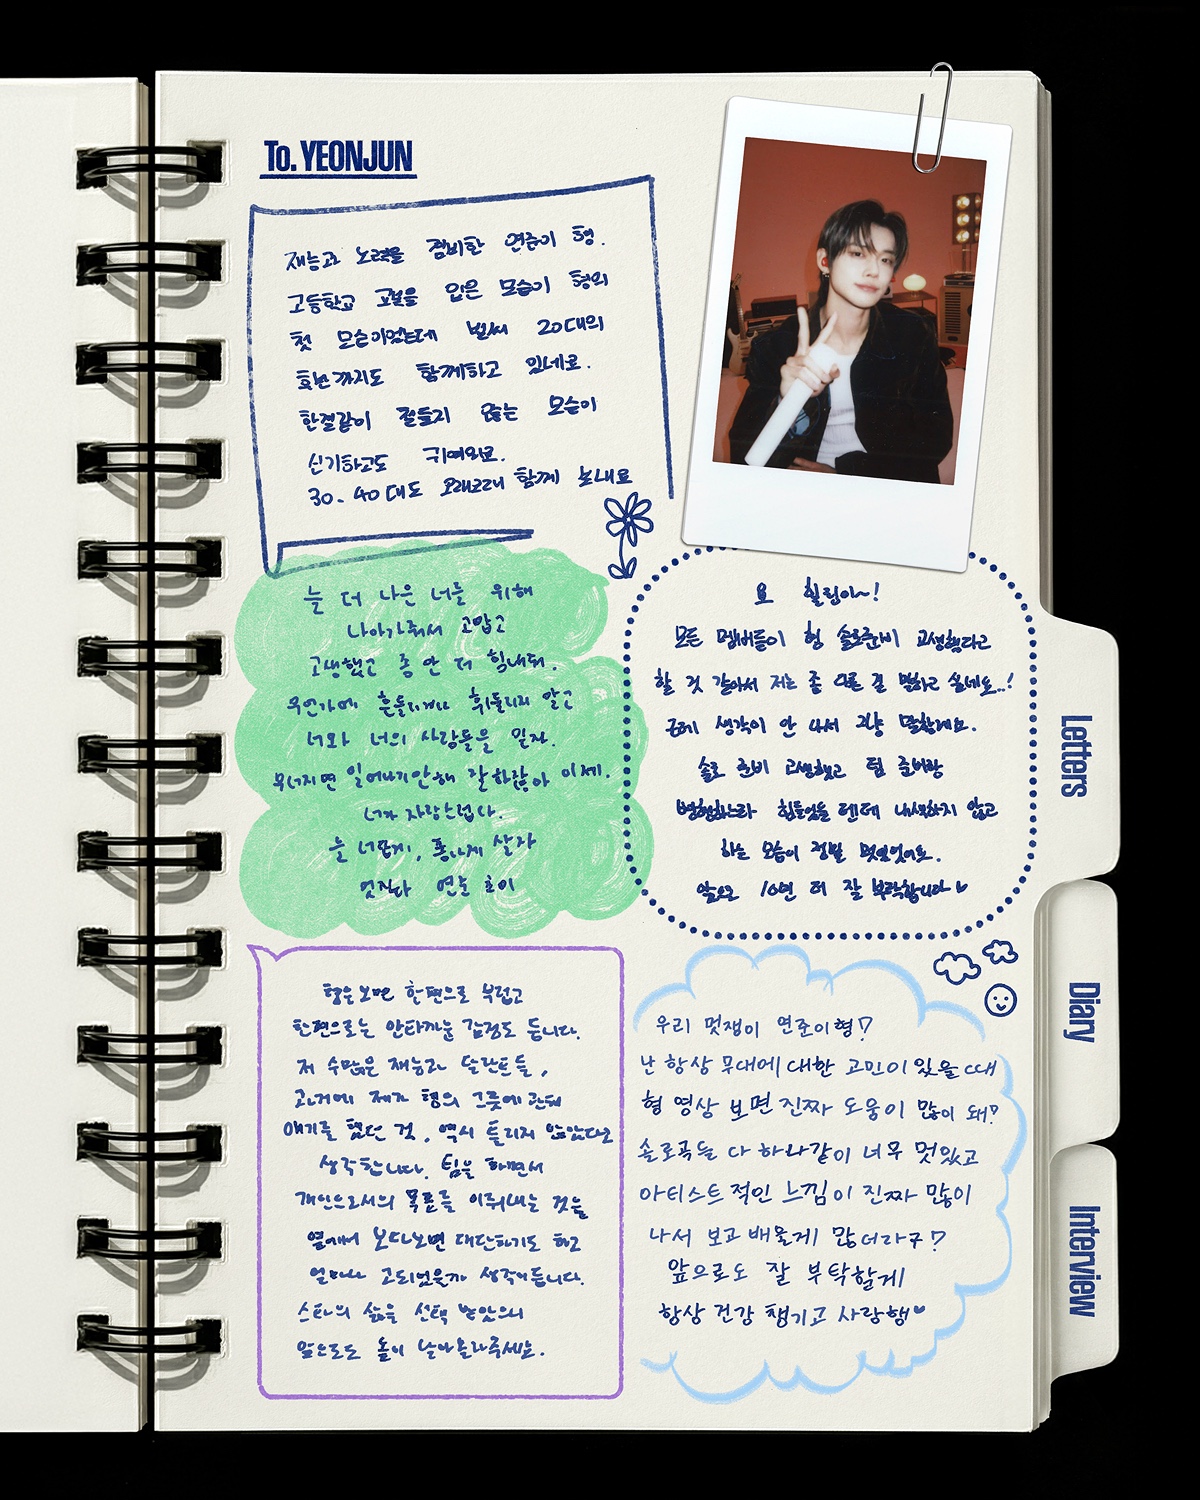 To. YEONJUN
재능과 노력을 겸비한 연준이 형.
고등학교 교복을 입은 모습이 형의
첫 모습이었는데 벌써 20대의
후반까지도 함께하고 있네요.
한결같이 철들지 않는 모습이
신기하고도 귀여워요.
30. 40대도 오래오래 함께 노내요
늘 더 나은 너를 위해
나아가줘서 고맙고
고생했고 좀 만 더 힘내줘.
무언가에 흔들리거나 휘둘리지 말고
너와 너의 사람들을 믿자.
무너지면 일어나기만해 잘하잖아 이제.
너가 자랑스럽다.
늘 너답게, 폼나게 살자
멋지다 연준 효이
요 힐링아~!
모든 멤버들이 형 솔로준비 고생했다고
할 것 같아서 저는 좀 다른 걸 말하고 싶네요..!
근데 생각이 안 나서 그냥 말할게요.
솔로 준비 고생했고 팀 준비랑
병행하느라 힘들었을 텐데 내색하지 않고
하는 모습이 정말 멋있었어요.
앞으로 10년 더 잘 부탁합니다♡
형은 보면 한편으로 부럽고
한편으로는 안타까운 감정도 듭니다.
저 수많은 재능과 달란트들,
과거에 제가 형의 그릇에 관해
얘기를 했던 것, 역시 틀리지 않았다고
생각합니다. 팀을 하면서
개인으로서의 목표를 이뤄내는 것을
옆에서 보다보면 대단하기도 하고
얼마나 고되었을까 생각이듭니다.
스타의 삶을 선택 받았으니
앞으로도 높이 날아올라주세요.
우리 멋쟁이 연준이형?
난 항상 무대에 대한 고민이 있을 때
형 영상 보면 진짜 도움이 많이 돼?
솔로곡들 다 하나같이 너무 멋있고
아티스트적인 느낌이 진짜 많이
나서 보고 배울게 많더라구?
앞으로도 잘 부탁할게
항상 건강 챙기고 사랑행♥
Letters
Diary
Interview